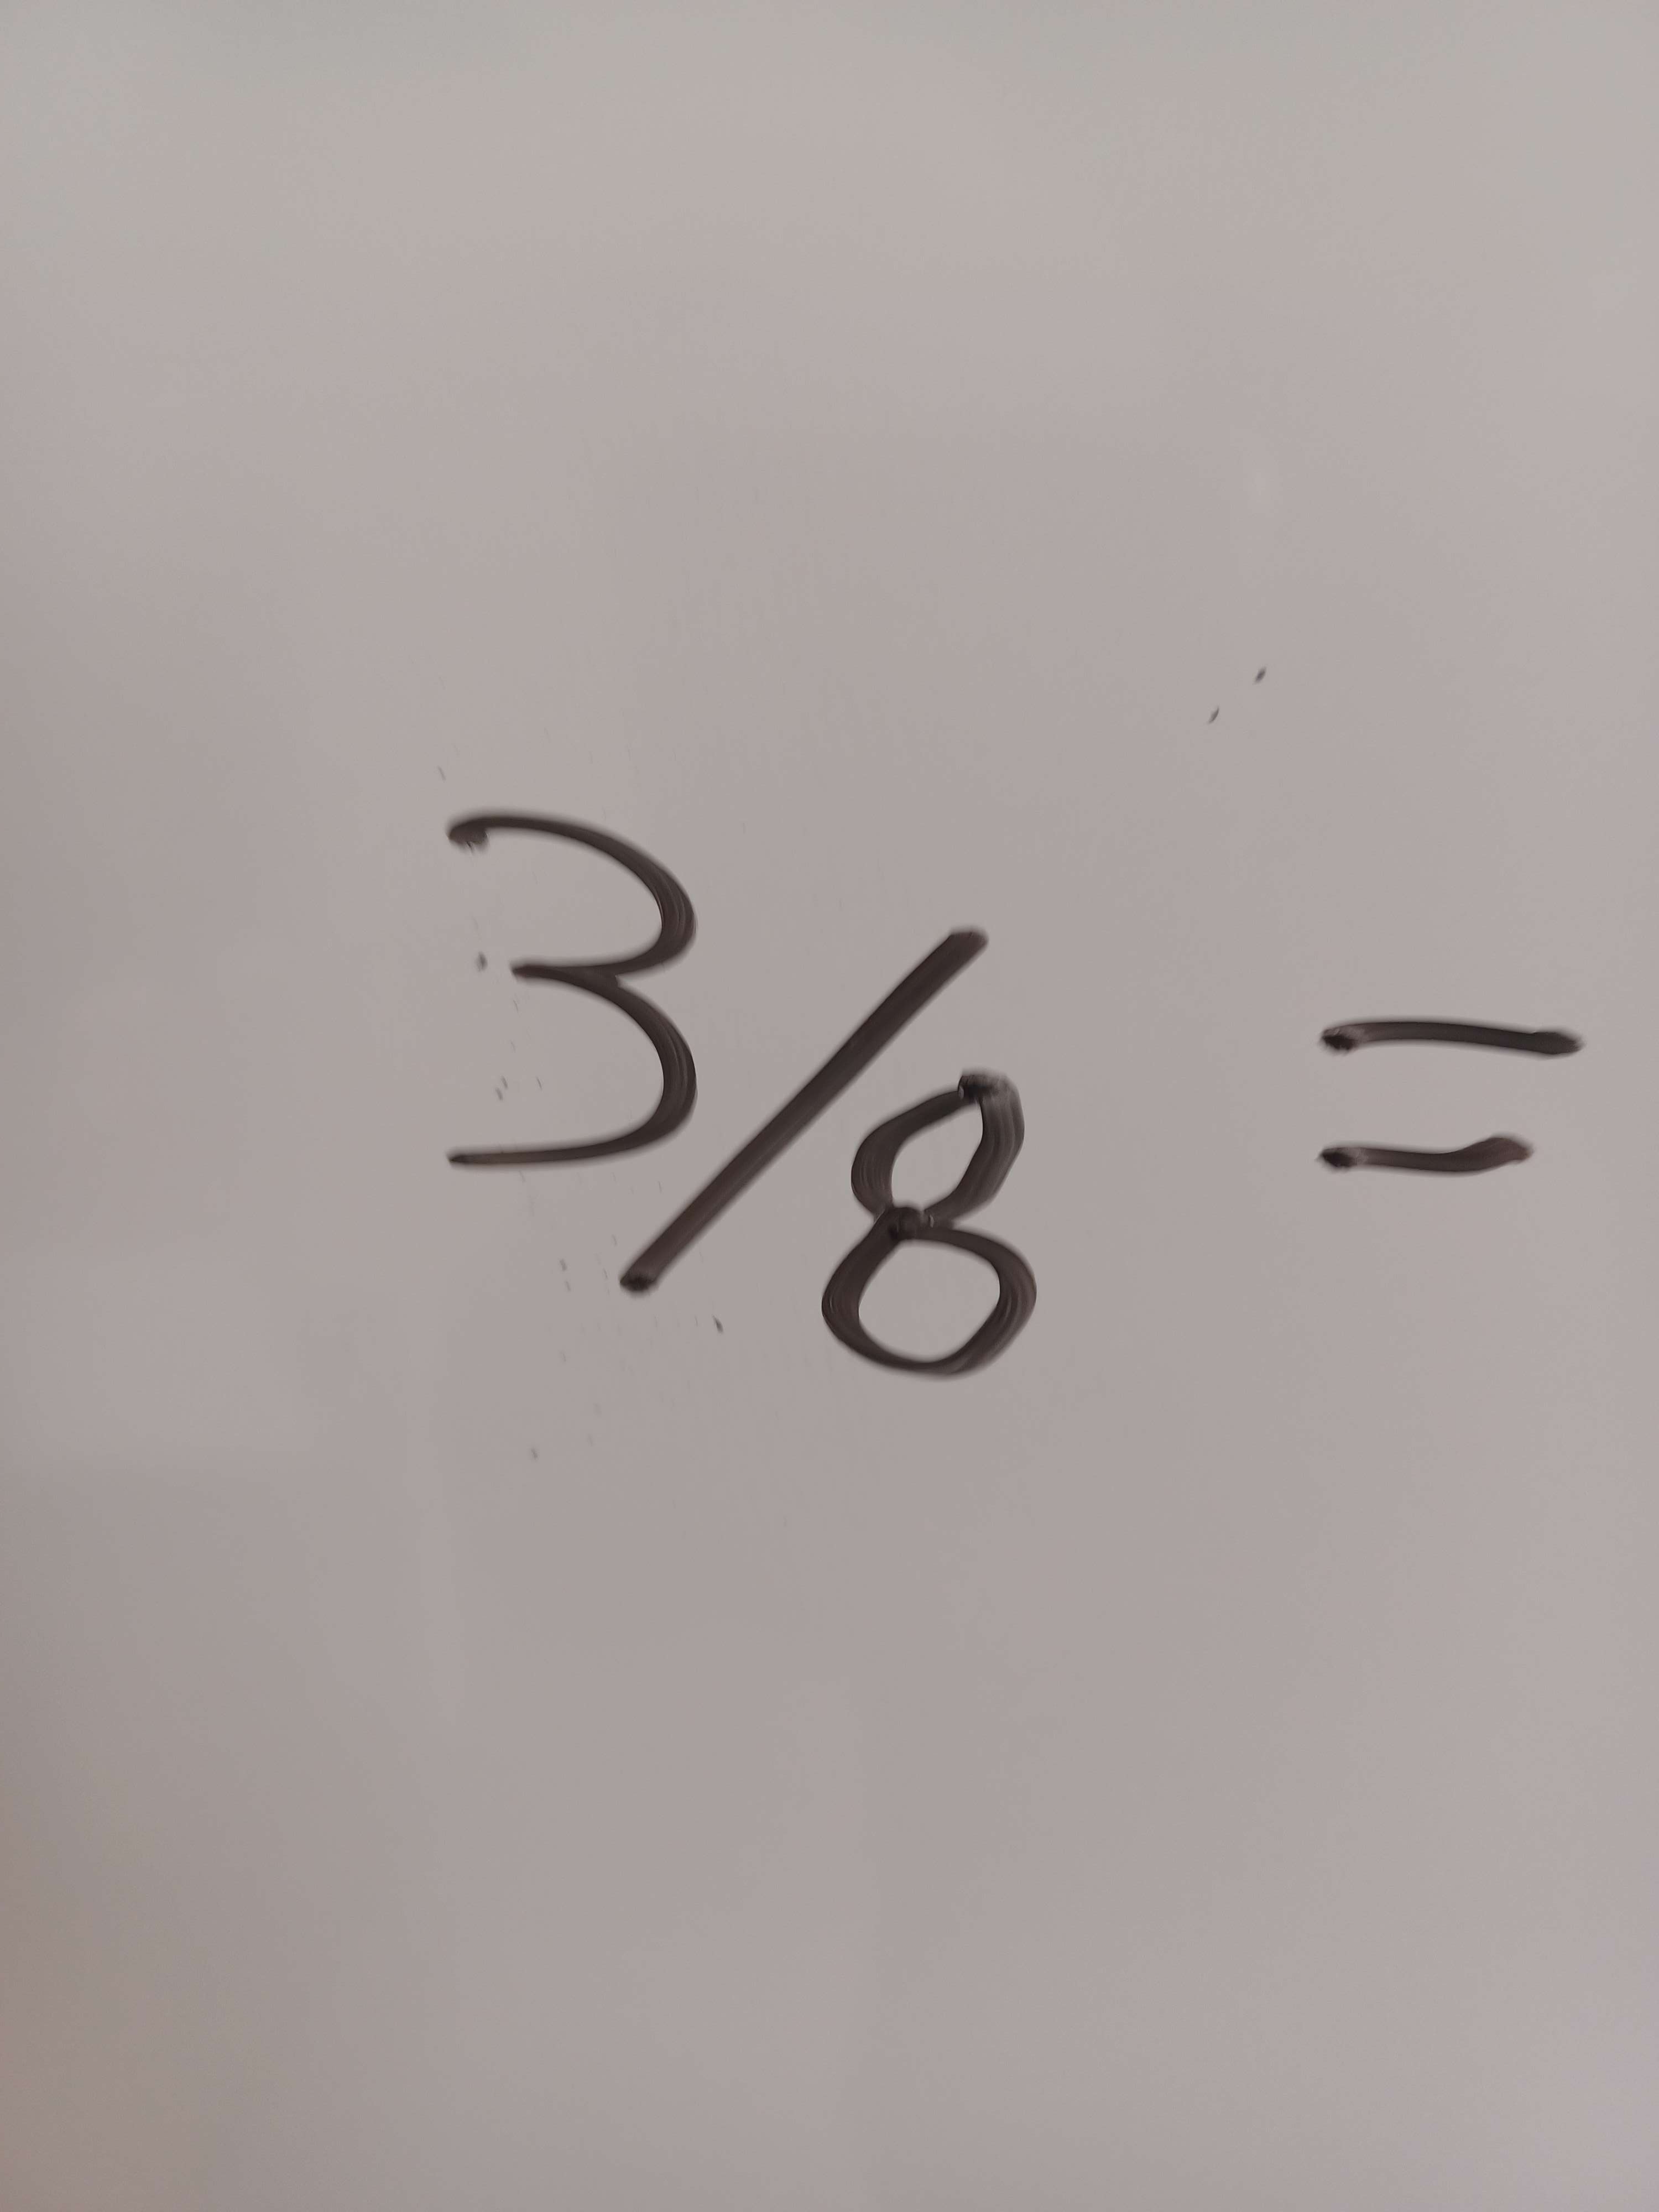 3/8 =